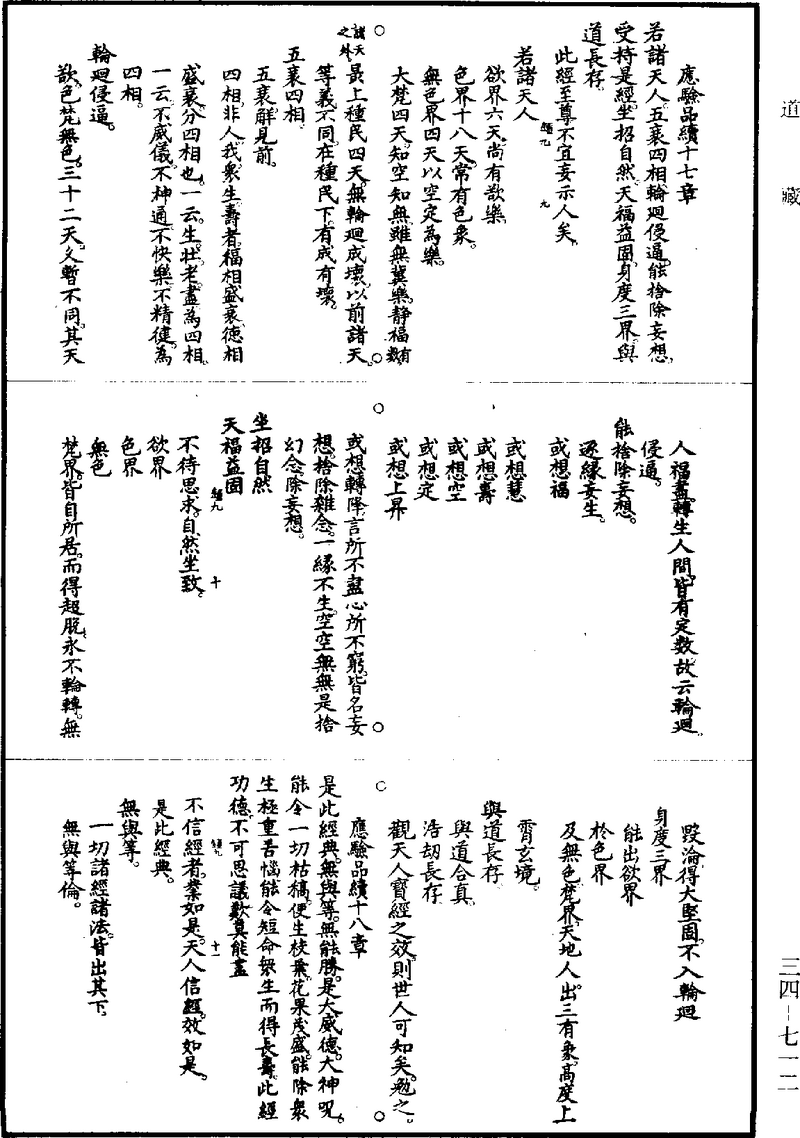 道藏
應驗品續十七章
若諸天人。五衰四相。輪迴侵逼。能捨除妄想。
受持是經。坐招自然。天福益固。身度三界。與
道長存。
此經至尊不宜妄示人矣。
若諸天人
欲界六天。尚有歆樂。
色界十八天。常有色象。
無色界四天。以空定為樂。
大梵四天。知空知無。雖無冀樂。靜福有數
諸天之外
最上種民四天。無輪迴成壞。以前諸天。
等義不同。在種民下。有成有壞。
五衰四相。
五衰解見前。
四相。非人我衆生壽者。福相盛衰。德相
盛衰。分四相也。一云。生壯老盡為四相。
一云。不威儀。不神通。不快樂。不精健。為
四相。
輪迴侵逼。
歆色梵無色。三十二天。久暫不同。其天
人福盡。轉生人間。皆有定數。故云輪迴
侵逼。
能捨除妄想。
逐緣妄生。
或想福
或想慧
或想壽
或想空
或想定
或想上昇
或想轉降。言所不盡。心所不窮。皆名妄
想。捨除雜念。一緣不生。空空無無。是捨
幻念。除妄想。
坐招自然
天福益固
不待思求。自然坐致。
欲界
色界
無色
梵界。皆自所居。而得超脫。永不輪轉。無
毀淪。得大堅固。不入輪迴
身度三界
能出欲界
於色界
及無色梵界。天地人出。三有象。高度上
霄玄境。
與道長存
與道合真
浩劫長存
觀天人寶經之效。則世人可知矣。勉之。
應驗品續十八章
是此經典。無與等。無能勝。是大威德。大神呪。
能令一切枯稿。便生枝葉。花果茂盛。能除衆
生極重苦惱。能令短命衆生而得長壽。此經
功德。不可思議。歎莫能盡
不信經者。業如是。天人信經。效如是。
是此經典。
無與等。
一切諸經諸法。皆出其下。
無與等倫。
三四-七一二